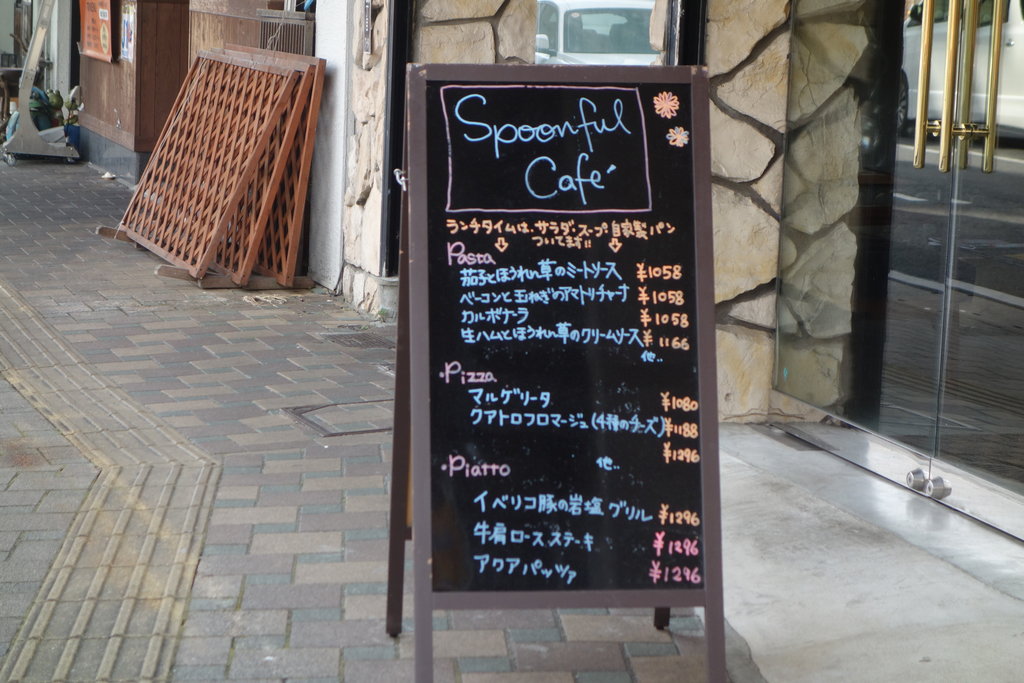 Spoonful
Café
ランチタイムは、サラダ・スープ 自家製パン
ついてます!!
Pasta
茄子とほうれん草のミートソース ¥1058
ベーコンと玉ねぎのアマトリチャーナ ¥1058
カルボナーラ ¥1058
生ハムとほうれん草のクリームソース ¥1166
他..
・Pizza
マルゲリータ ¥1080
クアトロフロマージュ(4種のチーズ) ¥1188
¥1296
他..
・Piatto
イベリコ豚の岩塩グリル ¥1296
牛肩ロースステーキ ¥1296
アクアパッツァ ¥1296